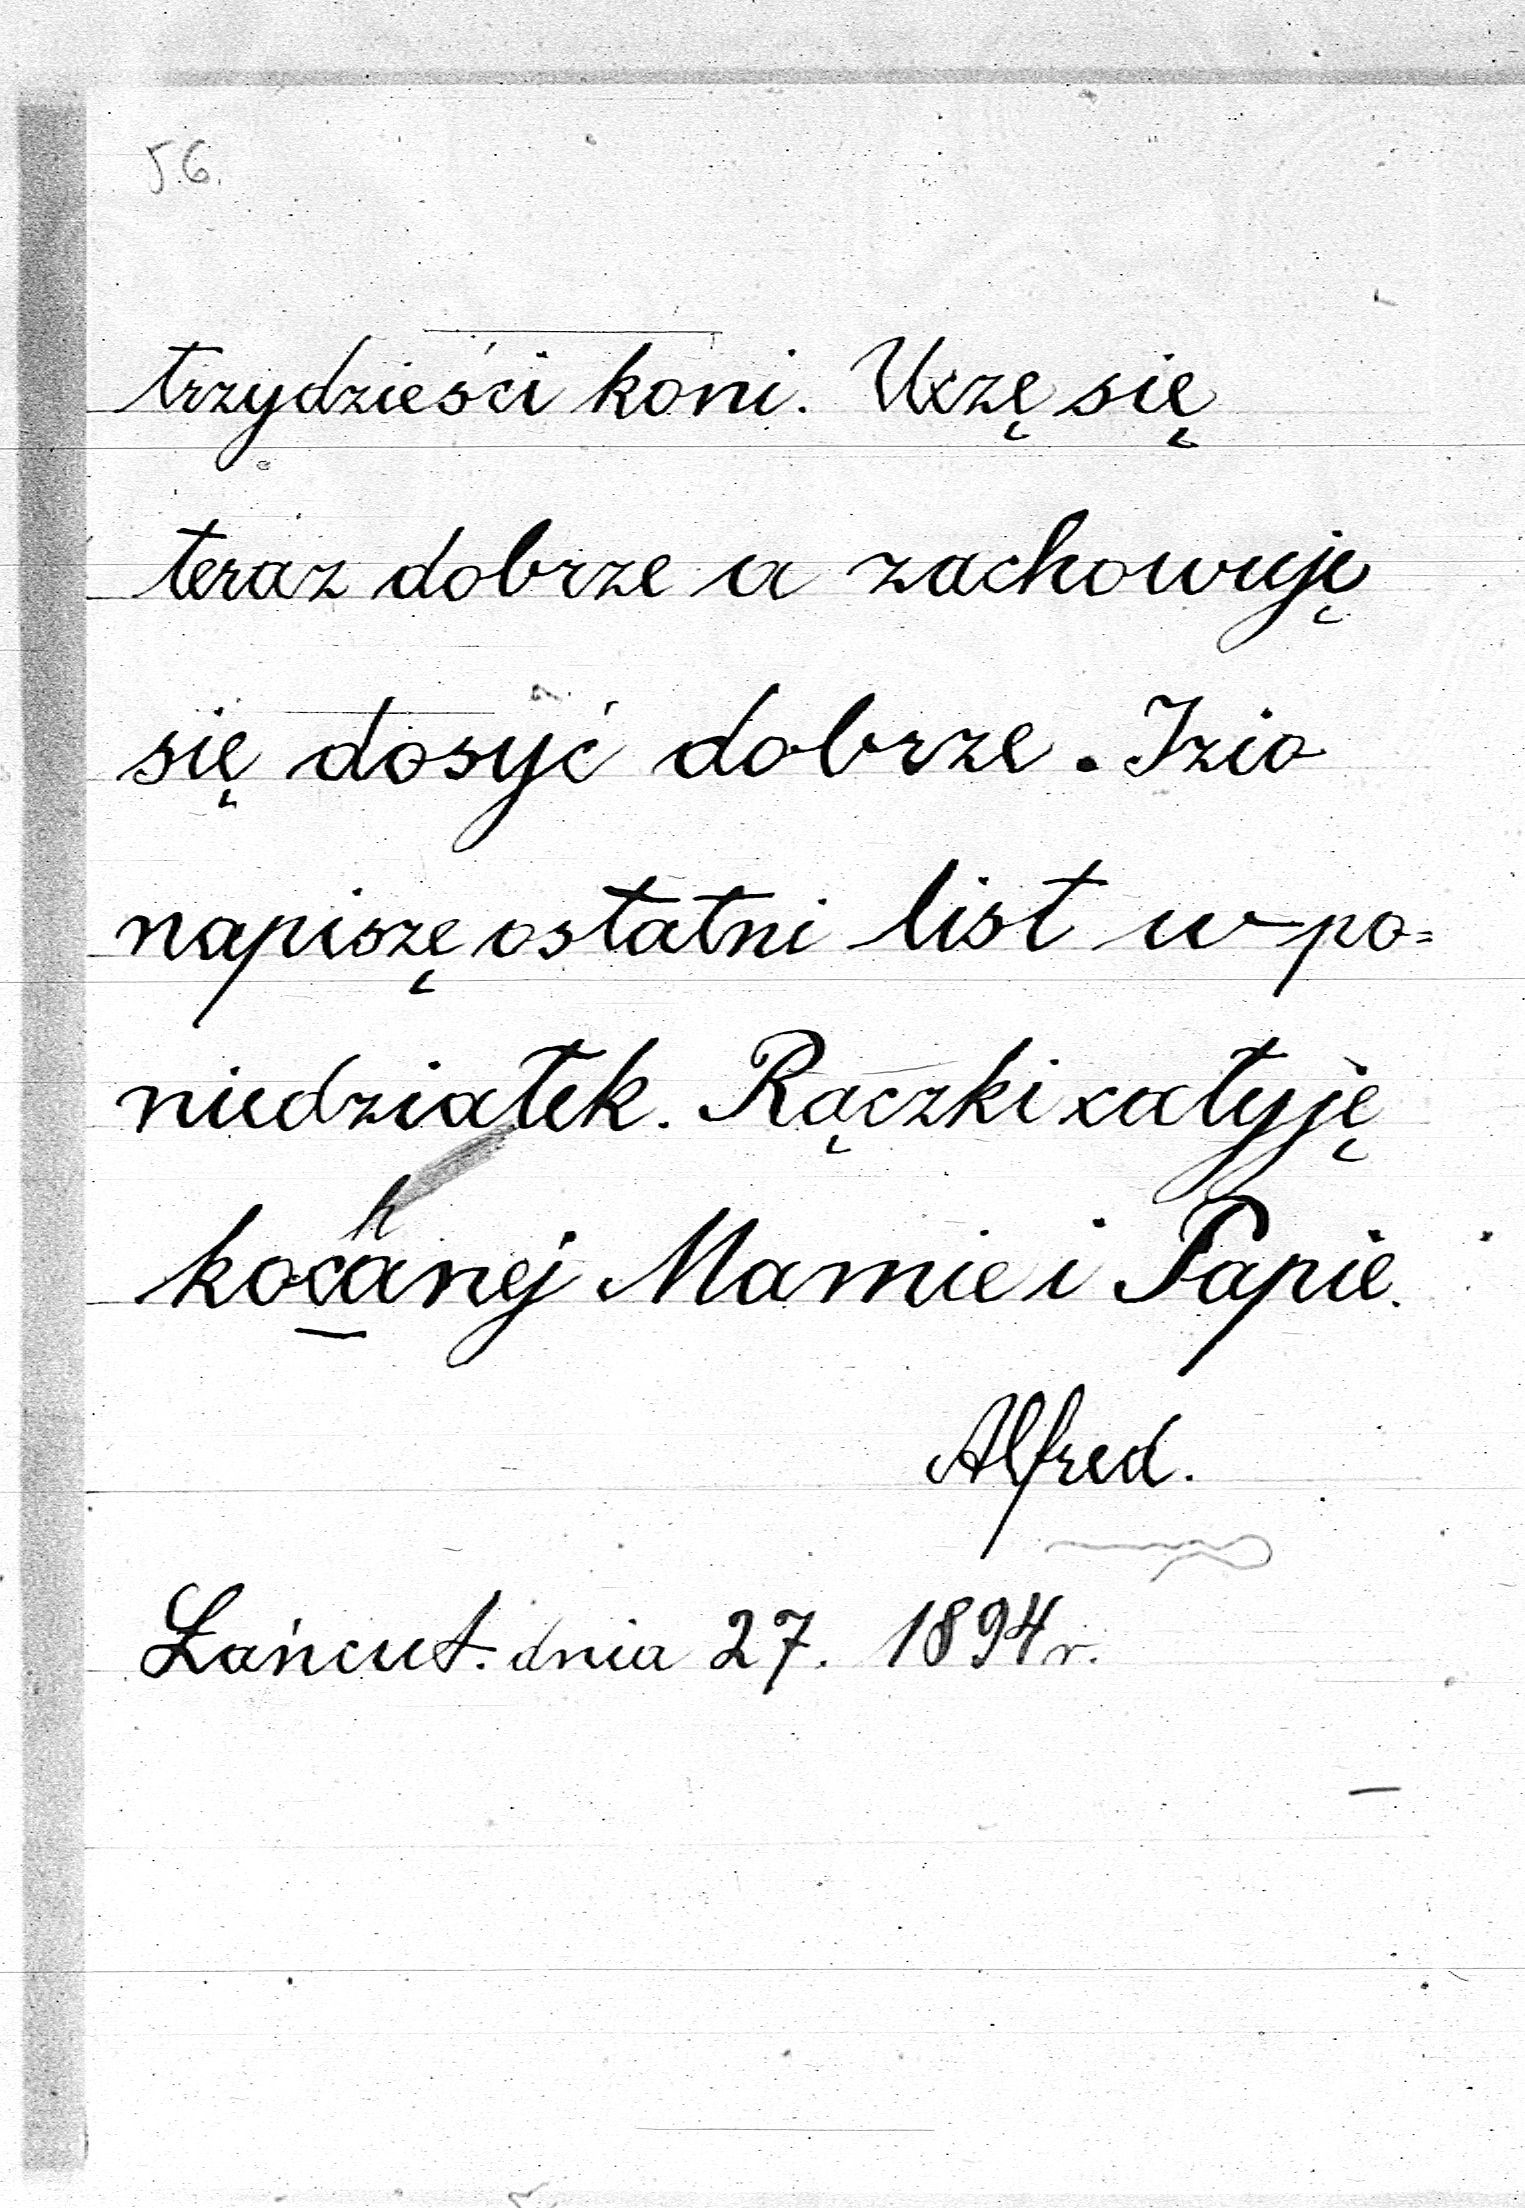 56.
trzydzieści koni. Uczę się
teraz dobrze a zachowuję
się dosyć dobrze. Izio
napiszę ostatni list w po=
niedziałek. Rączki całyję
kochanej Mamie i Papie.
Alfred.
Łańcut. dnia 27. 1894 r.